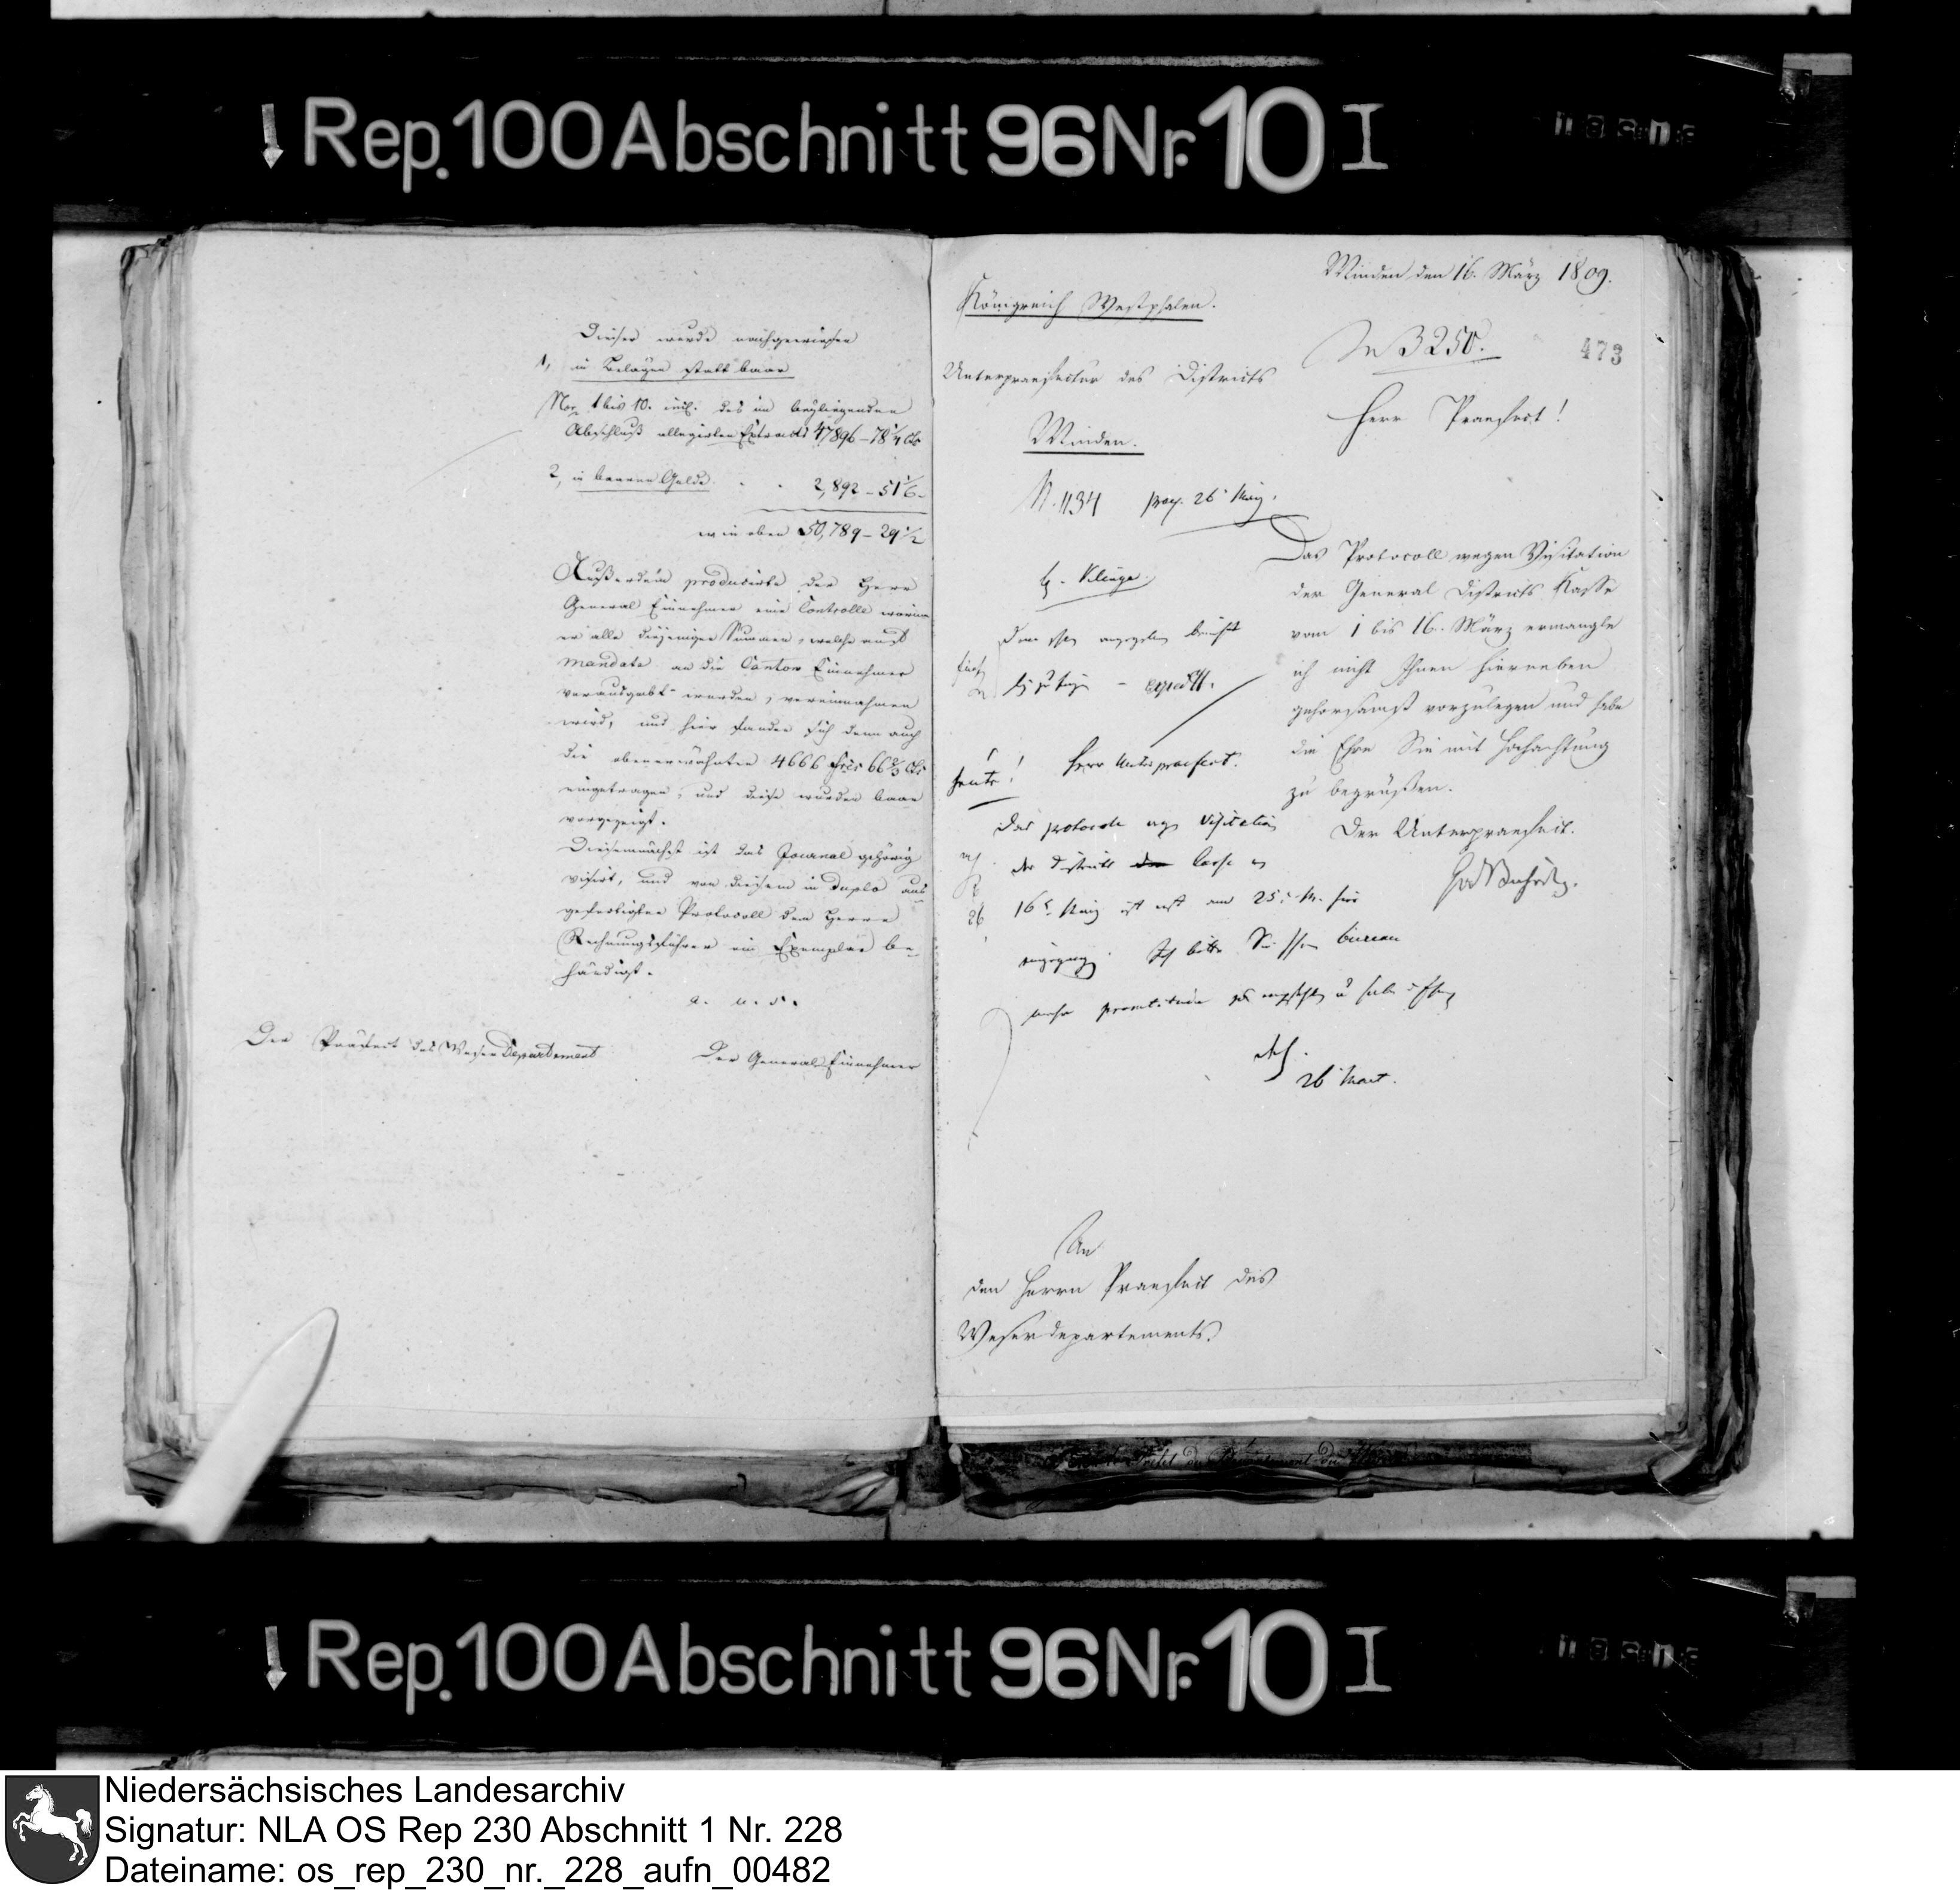 Rep. 100 Abschnitt 96 Nr. 10 I
Dieser wurde nachgewiesen
1, in Belägen statt baar
Nro 1 bis 10. incl. des im beyliegenden
Abschluß allegirten Extracts 47896 – 78 1/4 Cts
2, in baarem Gelde - - 2,892 – 51 1/6 –
wie oben 50,789 – 29 1/2
Außerdem producirte der Herr
General Einnehmer eine Controlle worin
er alle diejenigen Summen, welche auf
mandate an die Canton Einnehmer
verausgabt werden, vereinnahmen
wird, und hier fanden sich denn auch
die obenerwähnten 4666 frcs 66 2/3 Cts
eingetragen, und diese wurden baar
vorgezeigt.
Diesemnächst ist das Journal gehörig
visirt, und von diesem in duplo aus
gefertigten Protocoll dem Herrn
Rechnungsführer ein Exemplar be-
händigt.
a. u. s.
Der Präfect des Weser Departement
Der General Einnehmer
Minden den 16. März 1809.
Königreich Westphalen.
3250.
473
Unterpraefectur des Districts
Minden.
Herr Praefect!
N. 1134 26 März
Das Protocoll wegen Visitation
der General Districts Kasse
vom 1 bis 16. März ermangle
ich nicht Ihnen hierneben
gehorsamst vorzulegen und habe
die Ehre Sie mit Hochachtung
zu begrüßen.
Der Unterpraefect.
heute!
Herr Unterpraefect.
Das protocoll Visitation
der District Casse
16 März ist erst am 25. hier
eingegangen. Ich bitte Sie Ihrem bureau
mehr promtitude zu empfehlen u habe
26 Mart.
An
den Herrn Praefect des
Weserdepartements.
Rep. 100 Abschnitt 96 Nr. 10 I
Niedersächsisches Landesarchiv
Signatur: NLA OS Rep 230 Abschnitt 1 Nr. 228
Dateiname: os_rep_230_nr._228_aufn_00482